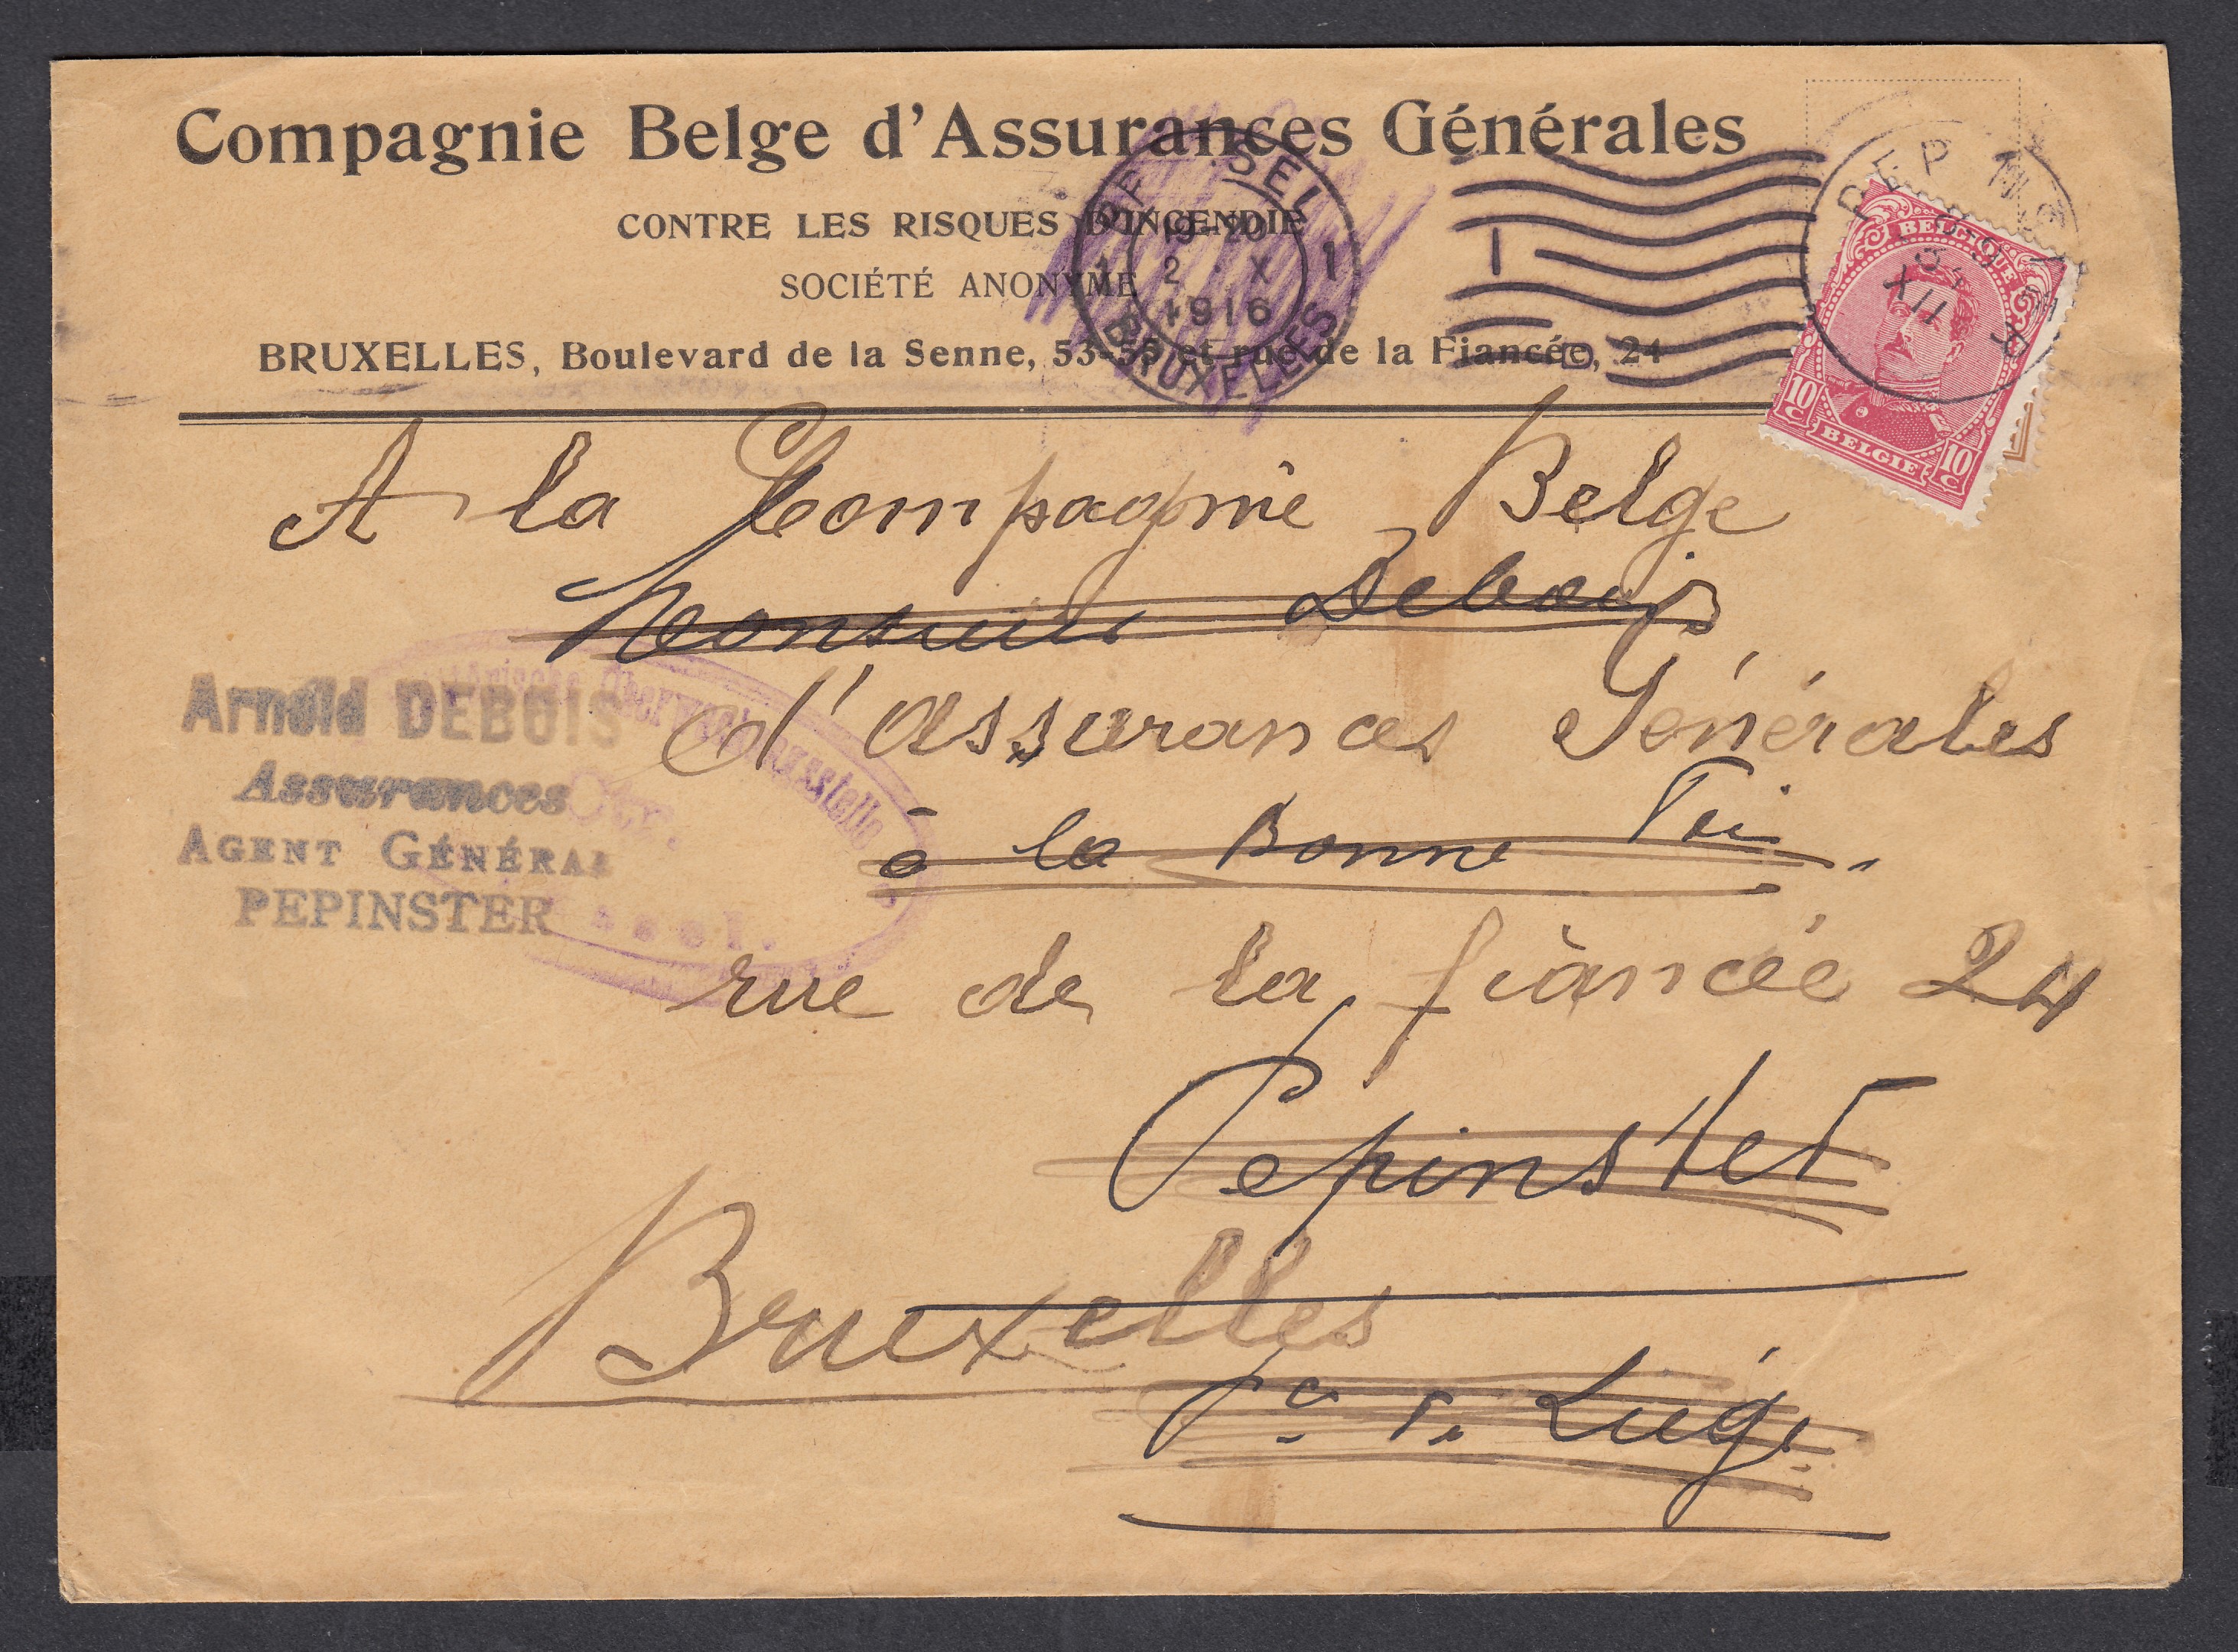 Compagnie Belge d'Assurances Générales
CONTRE LES RISQUES D'INCENDIE
SOCIÉTÉ ANONYME
BRUXELLES, Boulevard de la Senne, 53-55 et rue de la Fiancée, 24
SEL
1 1
2 X
1916
BRUXELLES
BELGIQUE
10 c 10 c
BELGIE
XII
A la Compagnie Belge
Monsieur Debouis
d'assurances Générales
à la Bonne
rue de la fiancée 24
Pepinster
Bruxelles
Liége
Arnold DEBUIS
Assurances
AGENT GÉNÉRAL
PEPINSTER